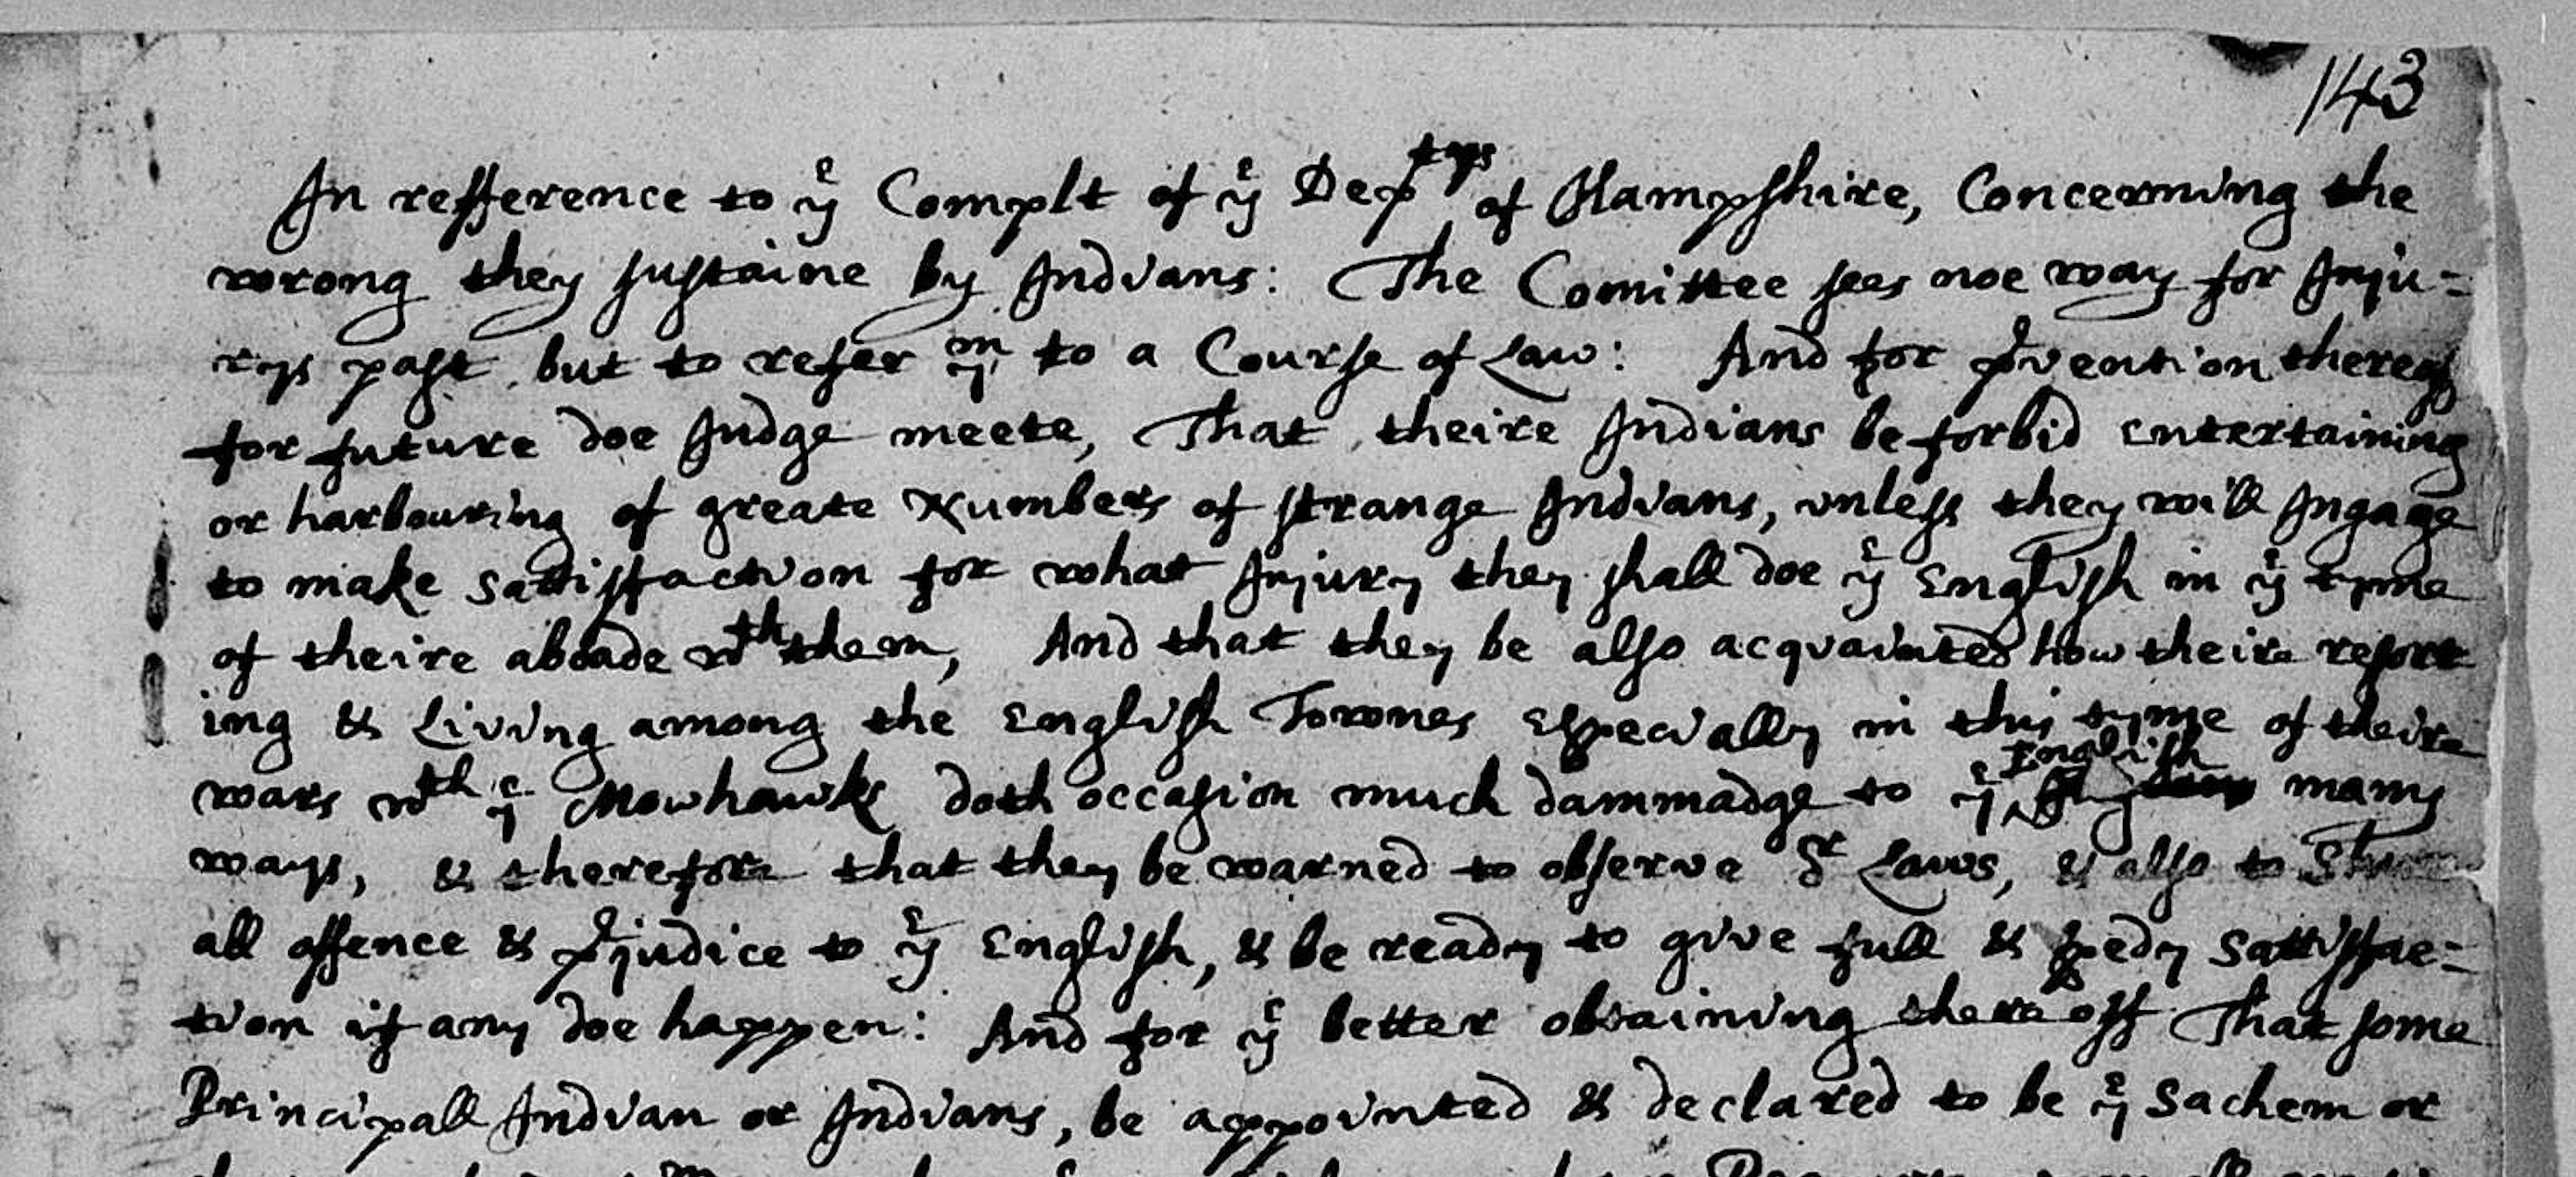 143
In refference to yͤ Complt of yͤ Deptys of Hampshire, Concerning the
wrong they sustaine by Indians: The Comittee sees noe way for Inju=
rys past, but to refer ym to a Course of Law: And for pͬvention thereof
for future doe Judge meete, That theire Indians be forbid entertaining
or harbouring of greate Numbers of strange Indians, unless they will Ingage
to make sattisfaction for what Injury they shall doe yͤ English in yͤ tyme
of theire aboade wth them, And that they be also acqvainted how theire resort
ing & Living among the English Townes especially in this tyme of theire
wars wth yͤ Mowhawks doth occasion much dammadge to yͤ English many
ways, & therefore that they be warned to observe oͬ Laws, & also to Shun
all offence & pͬjudice to yͤ English, & be ready to give full & spedy sattisfac=
tion if any doe happen: And for yͤ better obtaining thereoff That some
Principall Indian or Indians, be appointed & declared to be yͤ Sachem or